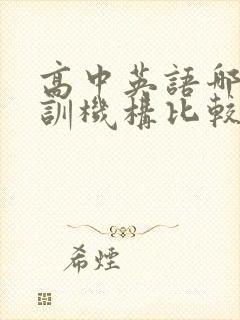 高中英語哪
訓機構比較
希煙